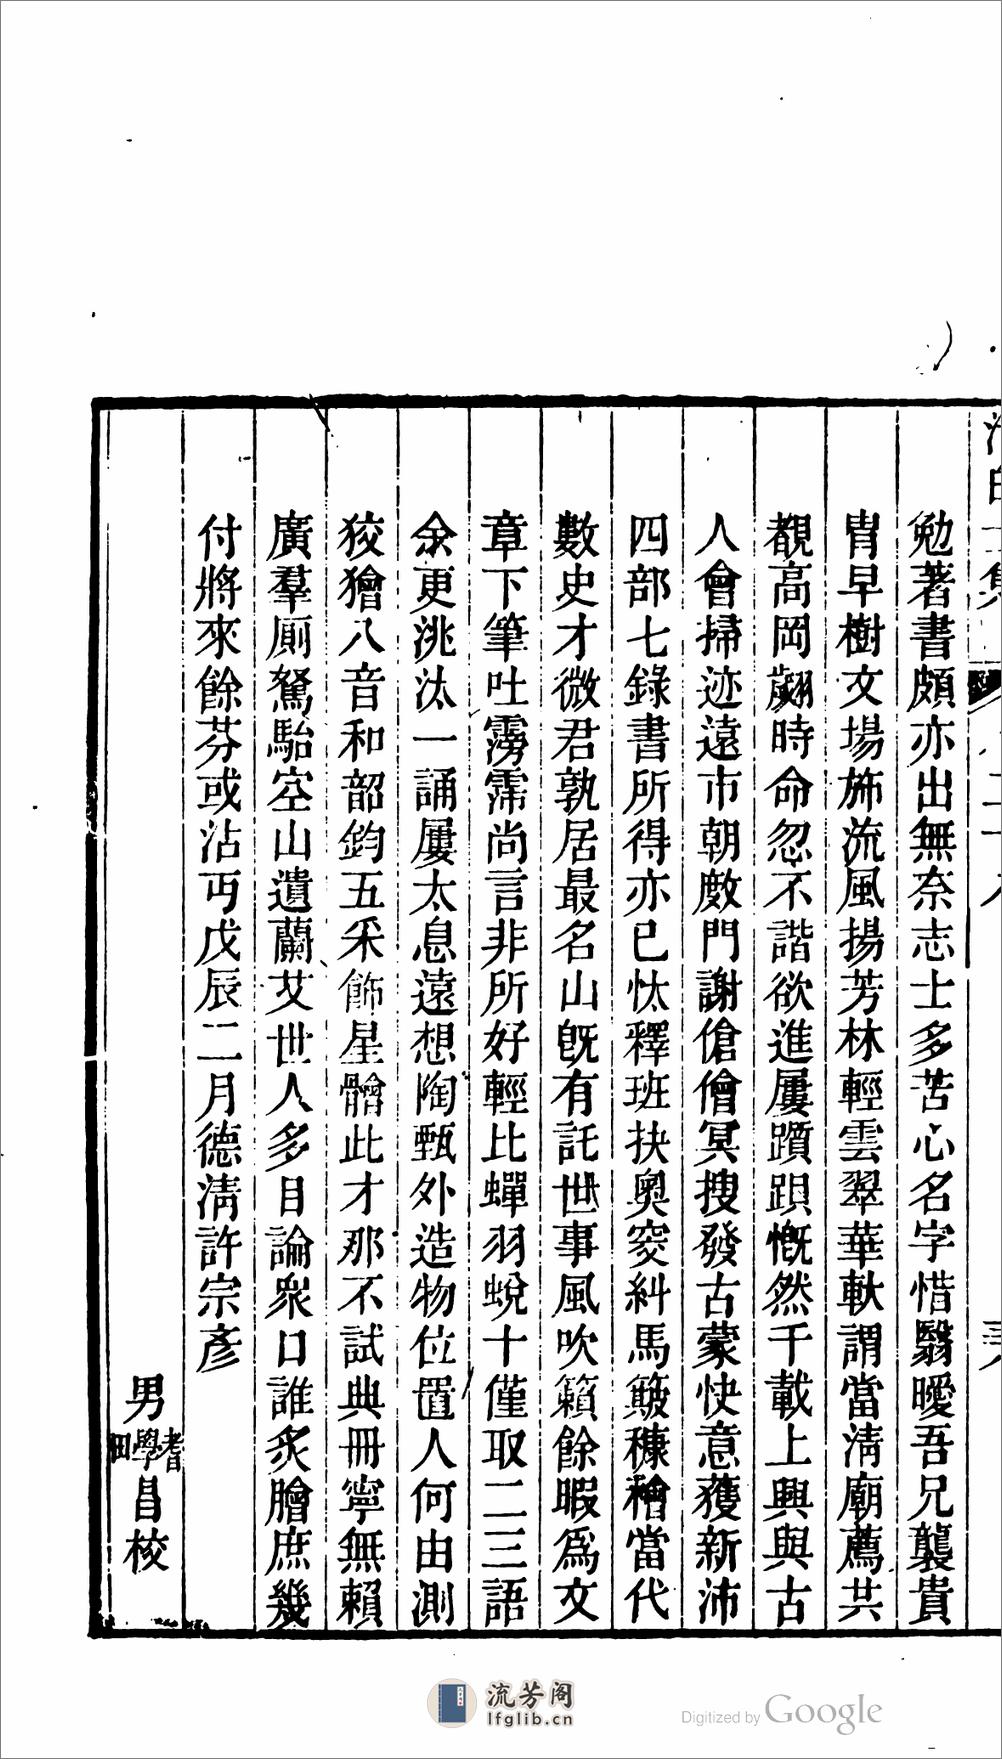 勉著書頗亦出無奈志士多苦心名字惜翳曖吾兄襲貴
胄早樹文場斾流風揚芳林輕雲翠華軑謂當淸廟薦共
覩高岡翽時命忽不諧欲進屢躓跟慨然千載上興與古
人會掃迹遠市朝敂門謝傖儈冥搜發古蒙快意獲新沛
四部七錄書所得亦已忲釋班抉奧窔糾馬簸穅䆐當代
數史才微君孰居最名山旣有託世事風吹籟餘暇爲文
章下筆吐霶霈尚言非所好輕比蟬羽蛻十僅取二三語
余更洮汰一誦屢太息遠想陶甄外造物位置人何由測
狡獪八音和韶鈞五采飾星䯤此才那不試典冊寧無賴
廣羣厠駑駘空山遺蘭艾世人多目論衆口誰炙膾庶幾
付將來餘芬或沾丐戊辰二月德淸許宗彥
男耆學田昌校
流芳阁
lfglib.cn
Digitized by Google